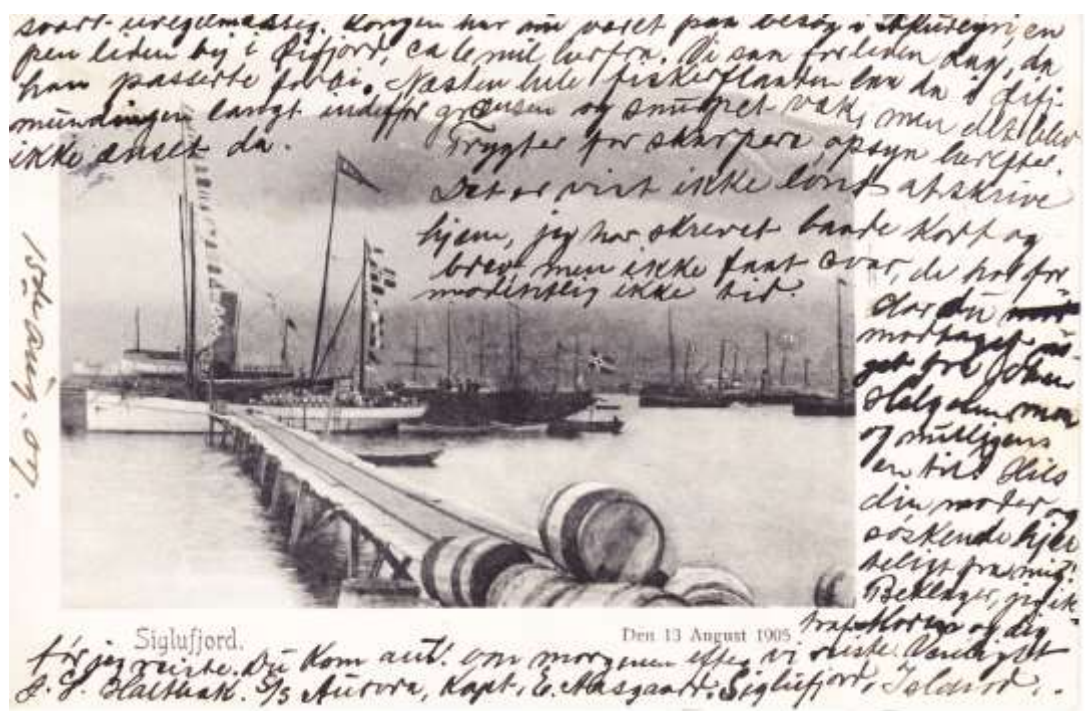 svært uregelmæssig. Kongen har nu været paa besøg i Akureyri, en
pen liden by i Øifjord, ca 6 mil herfra. Vi saa forleden dag, da
han passerte forbi. Næsten hele fiskerflaaden laa da i Øifj-
mundingen langt indefor grænsen og snurpet væk, men det blev
ikke ænset da.
Frygter for skarpere opsyn herefter.
Det er vist ikke lønt at skrive
hjem, jeg har skrevet baade kort og
brev men ikke faat svar, de har for-
modentlig ikke tid.
Har du
modtaget no-
get fra Johan
og muligens
en til. Hils
din moder og
søskende hjer
teligt fra mig!
Beklager, jeg ik
traf og dig
før jeg reiste. Du kom ant. om morgenen efter vi reiste. Venligst
S/S Aurora, Kapt. E. Aasgaard, Siglufjord, Island.
15de aug. 07.
Siglufjord.
Den 13 August 1905